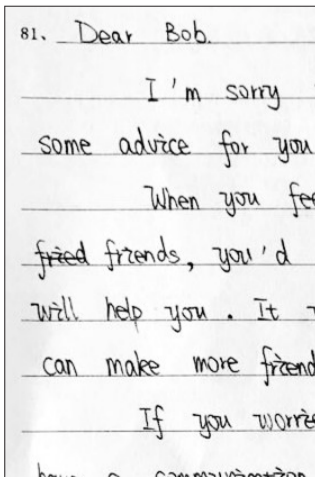 81、 Dear Bob.
I'm sorry
some advice for you
When you
friends, you'd
will help you. It
can make more
If you